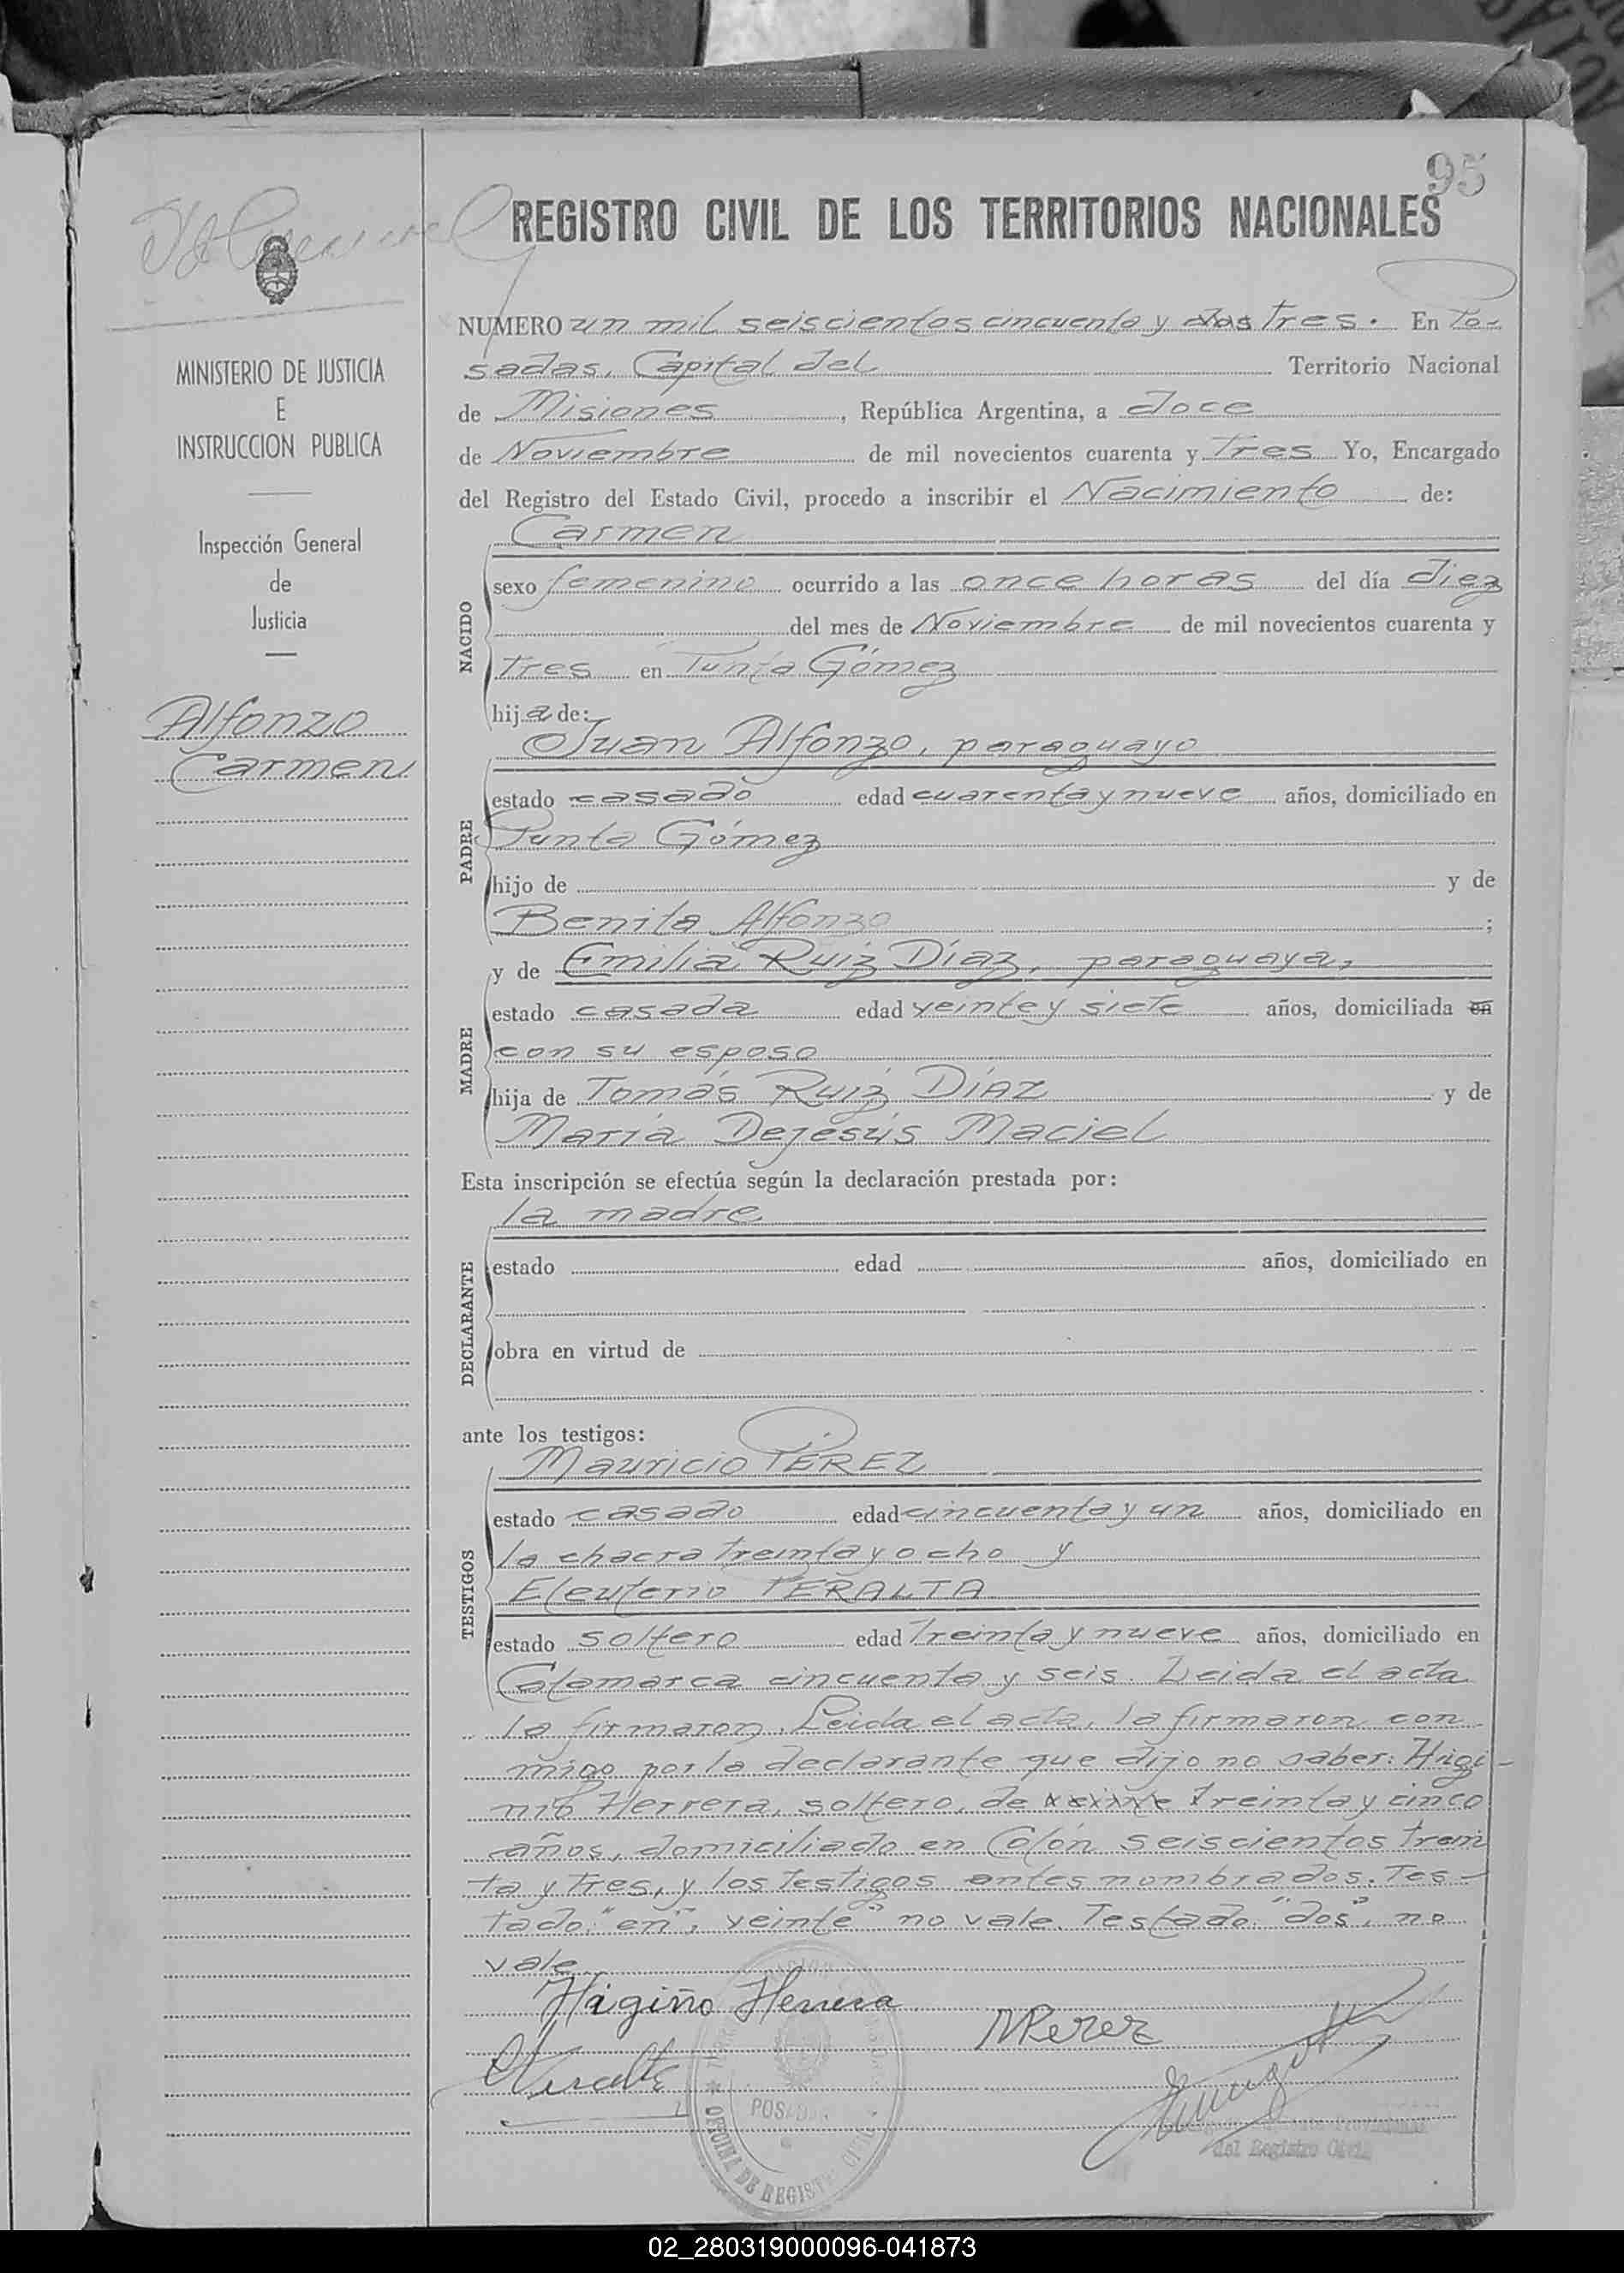 95
REGISTRO CIVIL DE LOS TERRITORIOS NACIONALES
MINISTERIO DE JUSTICIA
E
INSTRUCCION PUBLICA
Inspección General
de
Justicia
Alfonzo
Carmen
NUMERO un mil seiscientos cincuenta y dos tres. En Po-
sadas, Capital del Territorio Nacional
de Misiones, República Argentina, a doce
de Noviembre de mil novecientos cuarenta y Tres Yo, Encargado
del Registro del Estado Civil, procedo a inscribir el Nacimiento de:
NACIDO
Carmen
sexo femenino ocurrido a las once horas del día diez
del mes de Noviembre de mil novecientos cuarenta y
tres en Punta Gómez
hija de:
PADRE
Juan Alfonzo, paraguayo
estado casado edad cuarenta y nueve años, domiciliado en
Punta Gómez
hijo de y de
Benita Alfonzo ;
MADRE
y de Emilia Ruiz Díaz, paraguaya,
estado casada edad veinte y siete años, domiciliada en
con su esposo
hija de Tomás Ruiz Díaz y de
María Dejesús Maciel
Esta inscripción se efectúa según la declaración prestada por:
DECLARANTE
la madre
estado edad años, domiciliado en
obra en virtud de
ante los testigos:
TESTIGOS
Mauricio PÉREZ
estado casado edad cincuenta y un años, domiciliado en
la chacra treinta y ocho y
Eleuterio PERALTA
estado soltero edad Treinta y nueve años, domiciliado en
Catamarca cincuenta y seis. Leida el acta
la firmaron. Leida el acta, la firmaron con
migo por la declarante que dijo no saber: Higi-
nio Herrera, soltero, de Treinta y cinco
años, domiciliado en Colón seiscientos trein
ta y tres, y los testigos antes nombrados. Tes-
tado: "en", veinte" no vale. Testado. "dos", no
vale
Higiño Herrera
MPerez
POSADAS
OFICINA DE REGISTRO CIVIL
del Registro Civil
02_280319000096-041873